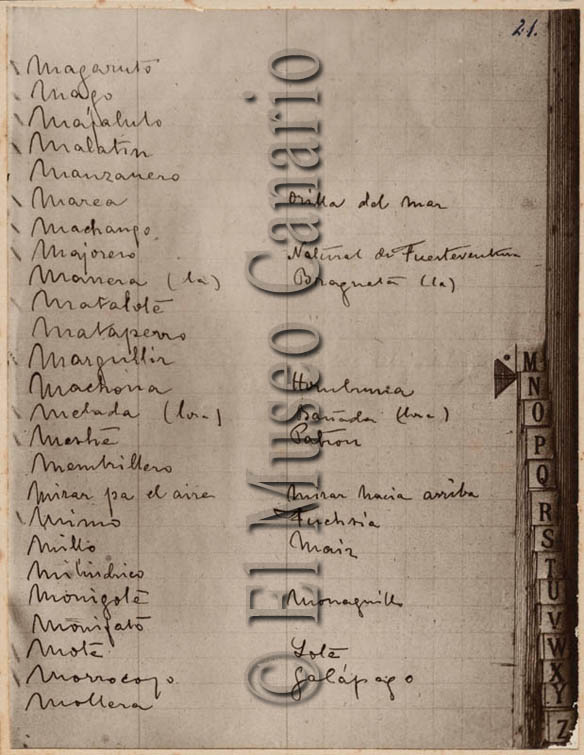 21.
Magaruto
Mago
Mápaluto
Malatín
Manzanero
Marea orilla del mar
Machango
Majorero Natural de Fuerteventura
Manera (la) Bragueta (la)
Matalote
Mataperro
Margullir
Machona Hombruna
Melada (
Mestre Patron
Membrillero
Mirar pa el aire mirar hacia arriba
Mimo Fuchsia
Millo Maiz
Monigote Monaguillo
Monifato
Mote Lote
Morrocoyo galápago
Mollera
© El Museo Canario
M
N
O
P
Q
R
S
T
U
V
W
X
Y
Z